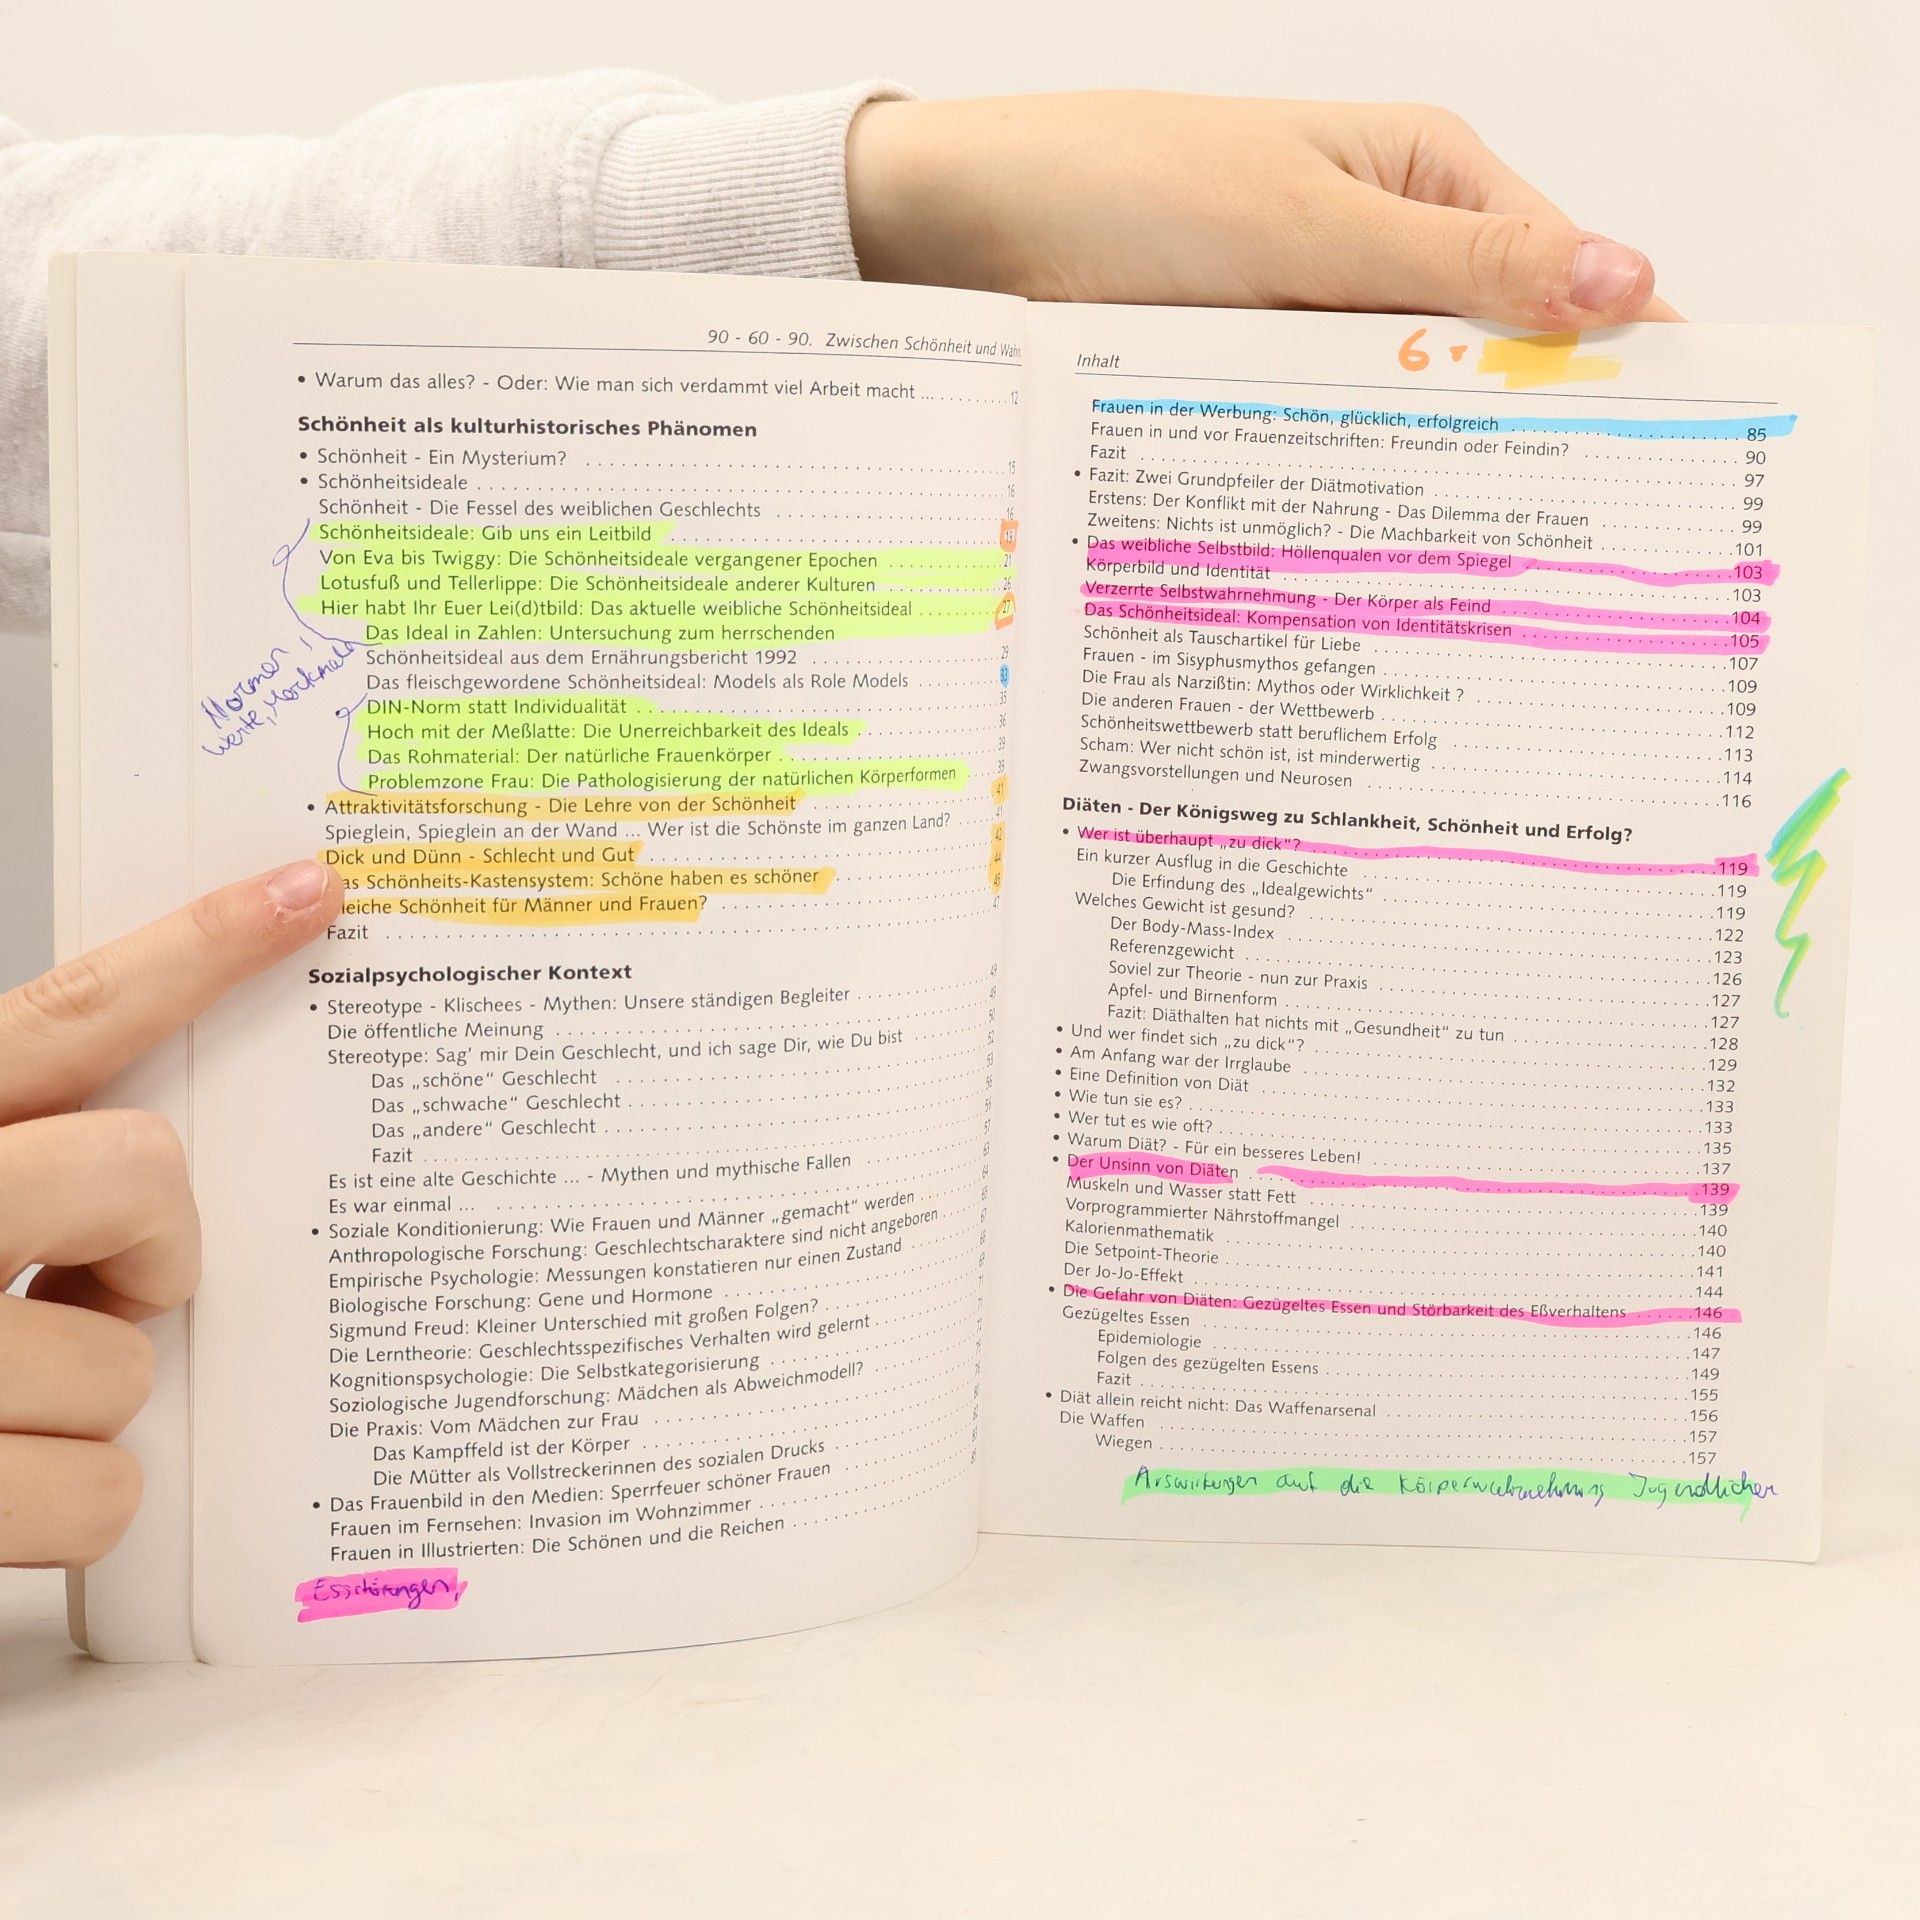 90 - 60 - 90. Zwischen Schönheit und Wahn
• Warum das alles? - Oder: Wie man sich verdammt viel Arbeit macht ... 12
Schönheit als kulturhistorisches Phänomen
• Schönheit - Ein Mysterium? 15
• Schönheitsideale 16
Schönheit - Die Fessel des weiblichen Geschlechts 16
Schönheitsideale: Gib uns ein Leitbild 19
Von Eva bis Twiggy: Die Schönheitsideale vergangener Epochen 21
Lotusfuß und Tellerlippe: Die Schönheitsideale anderer Kulturen 26
Hier habt Ihr Euer Lei(d)tbild: Das aktuelle weibliche Schönheitsideal 27
Das Ideal in Zahlen: Untersuchung zum herrschenden
Schönheitsideal aus dem Ernährungsbericht 1992 29
Das fleischgewordene Schönheitsideal: Models als Role Models 33
DIN-Norm statt Individualität 35
Hoch mit der Meßlatte: Die Unerreichbarkeit des Ideals 36
Das Rohmaterial: Der natürliche Frauenkörper 39
Problemzone Frau: Die Pathologisierung der natürlichen Körperformen 39
Normen,
Werte, Merkmale
• Attraktivitätsforschung - Die Lehre von der Schönheit 41
Spieglein, Spieglein an der Wand ... Wer ist die Schönste im ganzen Land? 41
Dick und Dünn - Schlecht und Gut 42
as Schönheits-Kastensystem: Schöne haben es schöner 44
leiche Schönheit für Männer und Frauen? 45
Fazit 47
Sozialpsychologischer Kontext
• Stereotype - Klischees - Mythen: Unsere ständigen Begleiter 49
Die öffentliche Meinung 49
Stereotype: Sag' mir Dein Geschlecht, und ich sage Dir, wie Du bist 50
Das „schöne“ Geschlecht 52
Das „schwache“ Geschlecht 53
Das „andere“ Geschlecht 56
Fazit 56
Es ist eine alte Geschichte ... - Mythen und mythische Fallen 57
Es war einmal ... 63
• Soziale Konditionierung: Wie Frauen und Männer „gemacht“ werden 64
Anthropologische Forschung: Geschlechtscharaktere sind nicht angeboren 65
Empirische Psychologie: Messungen konstatieren nur einen Zustand 67
Biologische Forschung: Gene und Hormone 68
Sigmund Freud: Kleiner Unterschied mit großen Folgen? 69
Die Lerntheorie: Geschlechtsspezifisches Verhalten wird gelernt 71
Kognitionspsychologie: Die Selbstkategorisierung 71
Soziologische Jugendforschung: Mädchen als Abweichmodell?
Die Praxis: Vom Mädchen zur Frau
Das Kampffeld ist der Körper
Die Mütter als Vollstreckerinnen des sozialen Drucks
• Das Frauenbild in den Medien: Sperrfeuer schöner Frauen
Frauen im Fernsehen: Invasion im Wohnzimmer
Frauen in Illustrierten: Die Schönen und die Reichen
Essstörungen,
6
Inhalt
Frauen in der Werbung: Schön, glücklich, erfolgreich 85
Frauen in und vor Frauenzeitschriften: Freundin oder Feindin? 90
Fazit 97
• Fazit: Zwei Grundpfeiler der Diätmotivation 99
Erstens: Der Konflikt mit der Nahrung - Das Dilemma der Frauen 99
Zweitens: Nichts ist unmöglich? - Die Machbarkeit von Schönheit 101
• Das weibliche Selbstbild: Höllenqualen vor dem Spiegel 103
Körperbild und Identität 103
Verzerrte Selbstwahrnehmung - Der Körper als Feind 104
Das Schönheitsideal: Kompensation von Identitätskrisen 105
Schönheit als Tauschartikel für Liebe 107
Frauen - im Sisyphusmythos gefangen 109
Die Frau als Narzißtin: Mythos oder Wirklichkeit ? 109
Die anderen Frauen - der Wettbewerb 112
Schönheitswettbewerb statt beruflichem Erfolg 113
Scham: Wer nicht schön ist, ist minderwertig 114
Zwangsvorstellungen und Neurosen 116
Diäten - Der Königsweg zu Schlankheit, Schönheit und Erfolg?
• Wer ist überhaupt „zu dick“? 119
Ein kurzer Ausflug in die Geschichte 119
Die Erfindung des „Idealgewichts“ 119
Welches Gewicht ist gesund? 122
Der Body-Mass-Index 123
Referenzgewicht 126
Soviel zur Theorie - nun zur Praxis 127
Apfel- und Birnenform 127
Fazit: Diäthalten hat nichts mit „Gesundheit“ zu tun 128
• Und wer findet sich „zu dick“? 129
• Am Anfang war der Irrglaube 132
• Eine Definition von Diät 133
• Wie tun sie es? 133
• Wer tut es wie oft? 135
• Warum Diät? - Für ein besseres Leben! 137
• Der Unsinn von Diäten 139
Muskeln und Wasser statt Fett 139
Vorprogrammierter Nährstoffmangel 140
Kalorienmathematik 140
Die Setpoint-Theorie 141
Der Jo-Jo-Effekt 144
• Die Gefahr von Diäten: Gezügeltes Essen und Störbarkeit des Eßverhaltens 146
Gezügeltes Essen 146
Epidemiologie 147
Folgen des gezügelten Essens 149
Fazit 155
• Diät allein reicht nicht: Das Waffenarsenal 156
Die Waffen 157
Wiegen 157
Auswirkungen auf die Körperwahrnehmung Jugendlicher